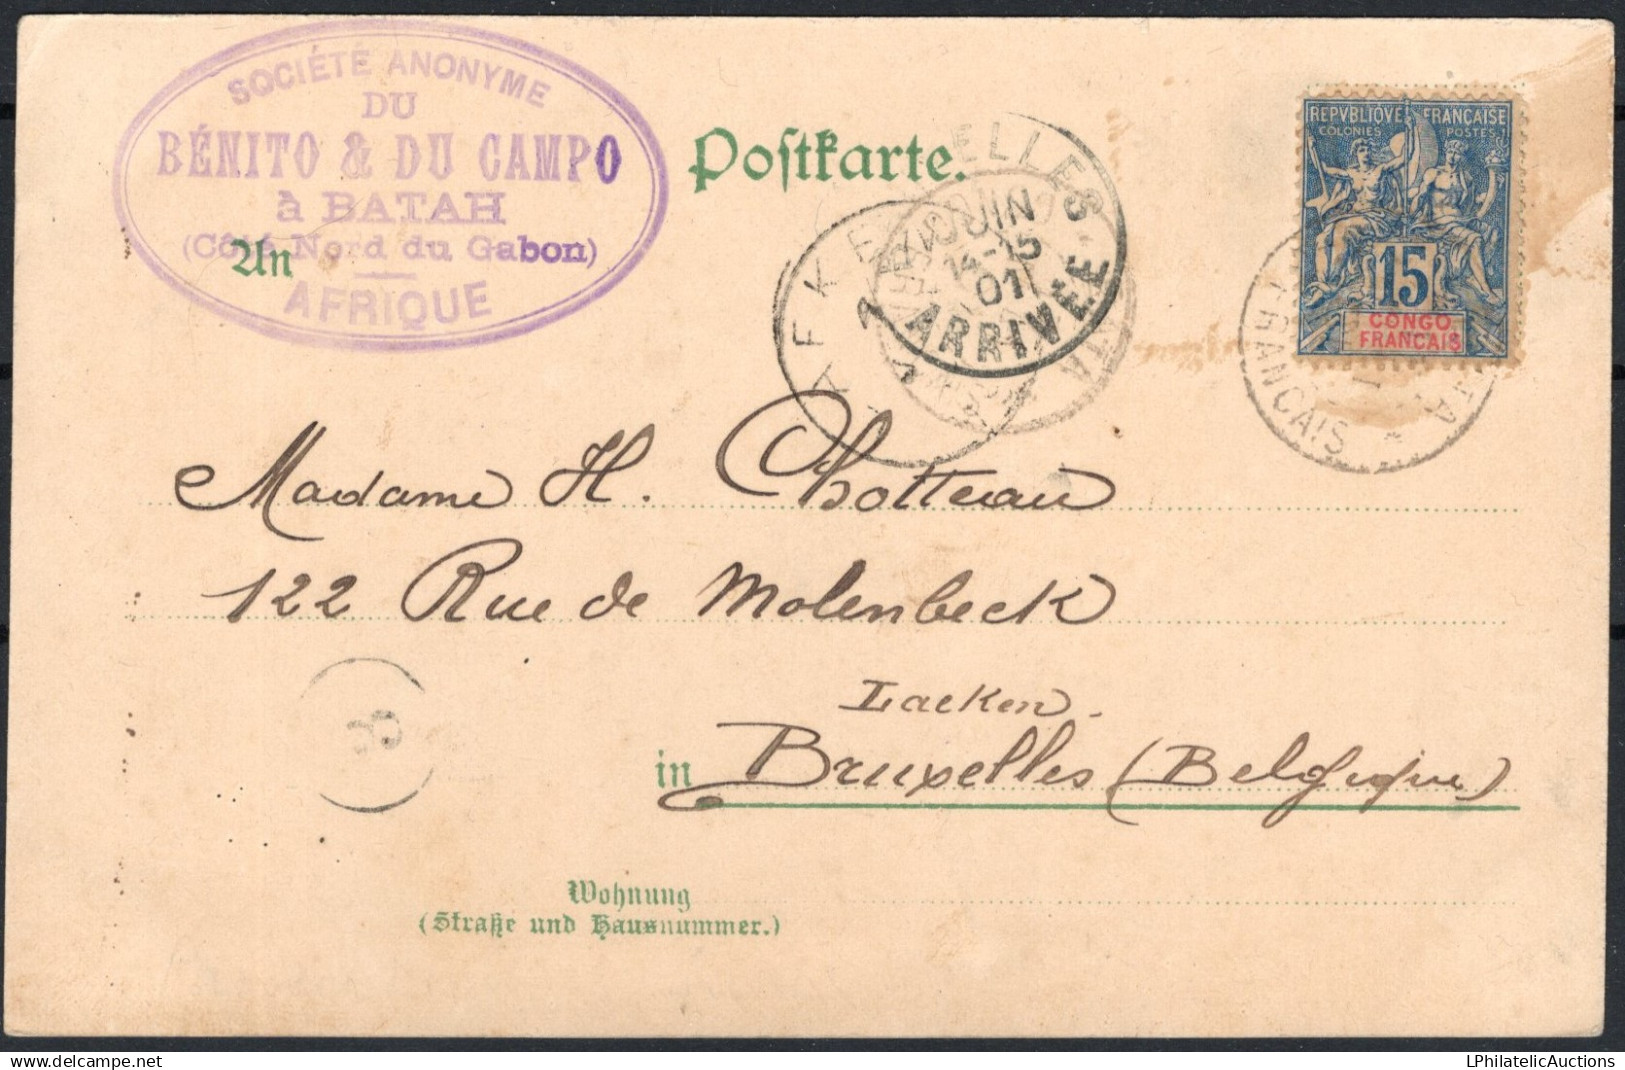 SOCIÉTÉ ANONYME
DU
BÉNITO & DU CAMPO
à BATAH
(Côté Nord du Gabon)
AFRIQUE
Poſtkarte.
An
ELLES
JUIN
14-15
01
ARRIVÉE
LAEKEN
REPVBLIQVE FRANÇAISE
COLONIES POSTES
15
CONGO
FRANÇAIS
TA
FRANCAIS
Madame H. Chotteau
122 Rue de Molenbeck
Laeken.
in Bruxelles (Belgique)
Wohnung
(Straße und Hausnummer.)
LPhilatelicAuctions